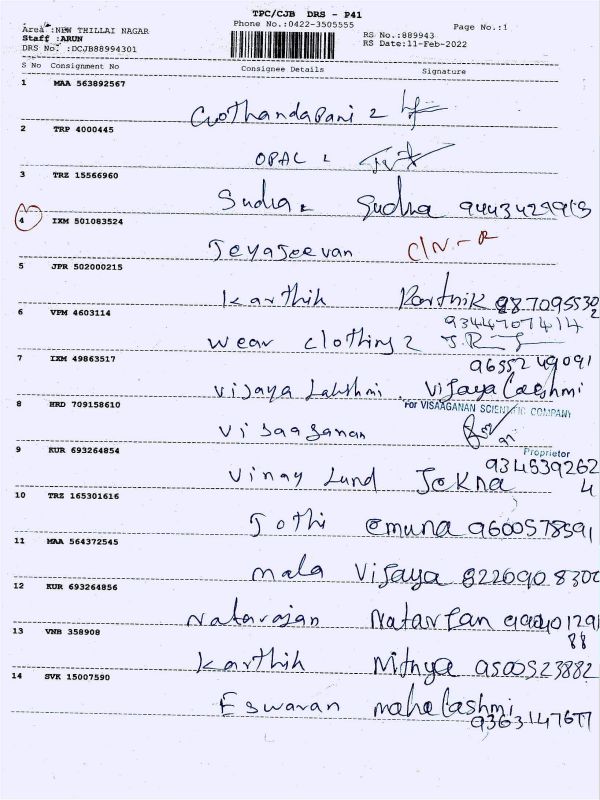 TPC/CJB DRS - P41
Area :NEW THILLAI NAGAR Phone No.:0422-3505555 Page No.:1
Staff :ARUN RS No.:889943
DRS No. :DCJB88994301 RS Date:11-Feb-2022
S No Consignment No Consignee Details Signature
1 MAA 563892567
Gothandapani 2
2 TRP 4000445
OPAL
3 TRZ 15566960
Sudha Sudha
4 IXM 501083524
Jeyajeevan
5 JPR 502000215
Karthik Karthik
6 VPM 4603114
9344707414
Wear clothing 2
7 IXM 49863517
9655249091
Vijaya Lakshmi Vijaya Lakshmi
8 HRD 709158610 For VISAAGANAN SCIENTIFIC COMPANY
Visaaganan
Proprietor
9 KUR 693264854
934639262
4
Vinay Lund
10 TRZ 165301616
Jothi emuna 9600578591
11 MAA 564372545
Mala Vijaya
12 KUR 693264856
Natarajan
88
13 VNB 358908
Karthik Nithya
14 SVK 15007590
Eswaran mahalashmi
9363147677